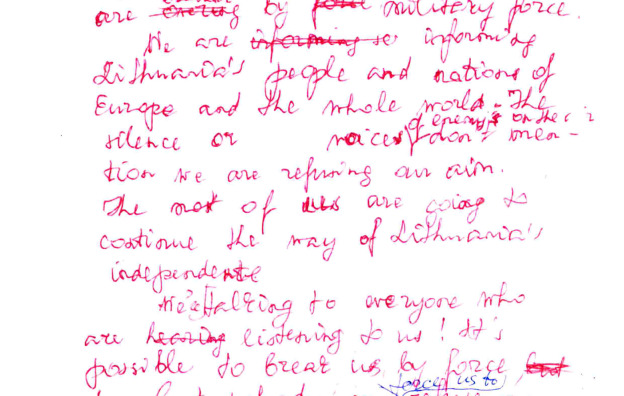 are by military force.
We are informing se informing
Lithuania's people and nations of
Europe and the whole world - the
of enemys on the air
silence or voices don't men-
tion we are refusing our aim.
The rest of us are going to
continue the way of Lithuania's
independente
We're talking to everyone who
are hearing listening to us! It's
possible to break us by force, but
force us to